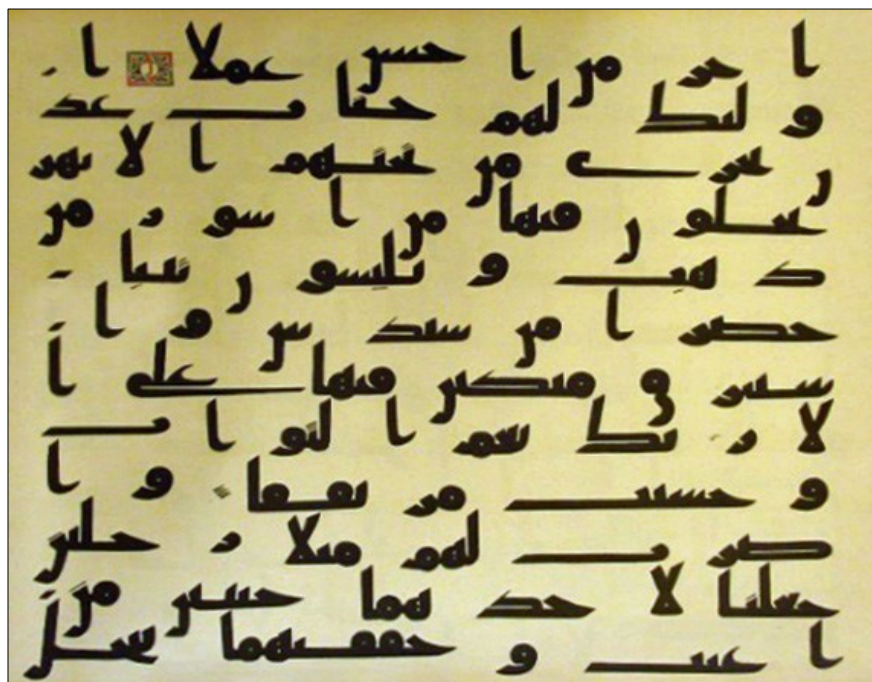 اجر من احسن عملا ا
ولئك لهم جنات عد
ن تجرى من تحتهم الانهر
يحلون فيها من اسور من
ذهب ويلبسون ثيابا
خضرا من سندس وا
ستبرق متكين فيها على ا
لارئك نعم الثواب
وحسنت مرتفقا وا
ضرب لهم مثلا رجلين
جعلنا لاحدهما جنتين من
اعنب وحففنهما بنخل